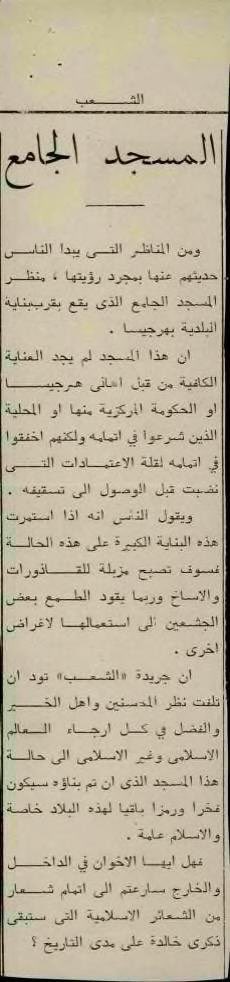 الشعب
المسجد الجامع
ومن المناظر التى يبدا الناس
حديثهم عنها بمجرد رؤيتها ، منظر
المسجد الجامع الذى يقع بقرب بناية
البلدية بهرجيسا .
ان هذا المسجد لم يجد العناية
الكافية من قبل اهالى هرجيسا
او الحكومة المركزية منها او المحلية
الذين شرعوا في اتمامه ولكنهم اخفقوا
في اتمامه لقلة الاعتمادات التى
نضبت قبل الوصول الى تسقيفه .
ويقول الناس انه اذا استمرت
هذه البناية الكبيرة على هذه الحالة
فسوف تصبح مزبلة للقاذورات
والاساخ وربما يقود الطمع بعض
الجشعين الى استعمالها لاغراض
اخرى .
ان جريدة «الشعب» تود ان
تلفت نظر المحسنين واهل الخير
والفضل في كل ارجاء العالم
الاسلامى وغير الاسلامى الى حالة
هذا المسجد الذى ان تم بناؤه سيكون
فخرا ورمزا باقيا لهذه البلاد خاصة
والاسلام عامة .
فهل ايها الاخوان في الداخل
والخارج سارعتم الى اتمام شعار
من الشعائر الاسلامية التى ستبقى
ذكرى خالدة على مدى التاريخ ؟